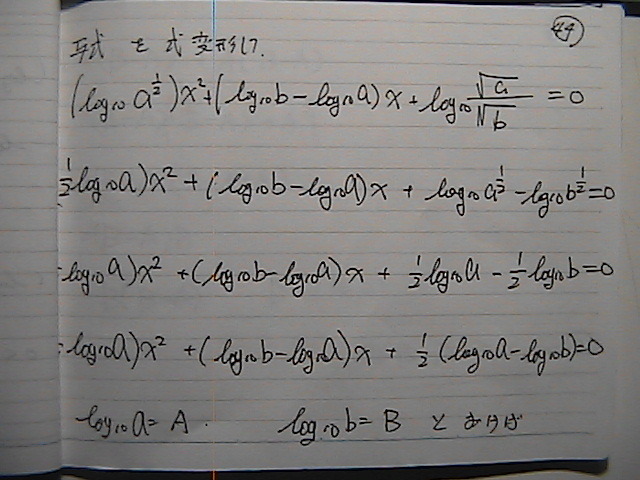 44
与式を式変形して.
(log₁₀ a^{1/2})x² + (log₁₀ b − log₁₀ a)x + log₁₀ √a/√b = 0
1/2 log₁₀ a)x² + (log₁₀ b − log₁₀ a)x + log₁₀ a^{1/2} − log₁₀ b^{1/2} = 0
log₁₀ a)x² + (log₁₀ b − log₁₀ a)x + 1/2 log₁₀ a − 1/2 log₁₀ b = 0
log₁₀ a)x² + (log₁₀ b − log₁₀ a)x + 1/2 (log₁₀ a − log₁₀ b) = 0
log₁₀ a = A . log₁₀ b = B とおけば